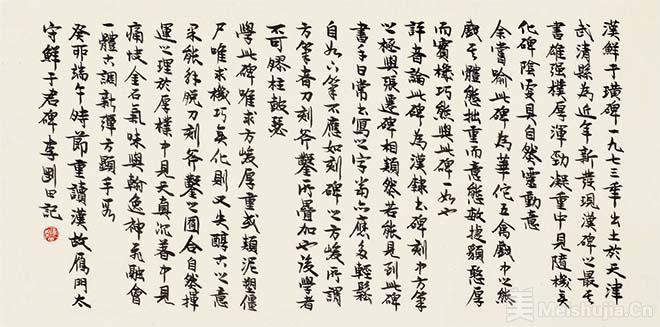 漢鮮于璜碑一九七三年出土於天津
武清縣為近年新發現漢碑之最其
書雄强樸厚渾勁凝重中見隨機矣
化碑陰更具自然靈動意
余嘗喻此碑為華佗五禽戲中之熊
戲其體態拙重而意態敏捷顢憨厚
而實機巧能與此碑一如也
評者論此碑為漢隸書碑刻中方筆
之極與張遷碑相類然若能見到此碑
書手日常書寫之字當亦應多輕鬆
自如之筆不應如刻碑之方峻所謂
方筆者刀刻斧鑿所疊加也後學者
不可膠柱鼓瑟
學此碑唯求方峻厚重或類泥塑僵
尸唯求機巧矣化則又失醇古之意
采能給脫刀刻斧鑿之圈合自然揮
運之理於厚樸中見天真沉著中見
痛快金石氣味與翰逸神飛融會
一體古調新彈方顯手段
癸卯端午時節重讀漢故雁門太
守鮮于君碑李剛田記
美 Meishujia.Cn